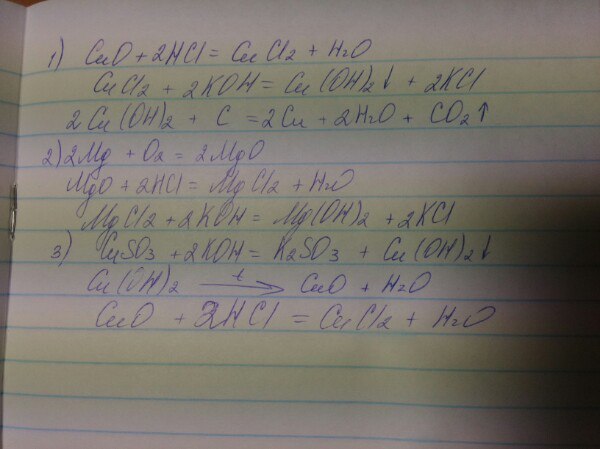 1) CuO + 2HCl = CuCl2 + H2O
CuCl2 + 2KOH = Cu(OH)2↓ + 2KCl
2Cu(OH)2 + C = 2Cu + 2H2O + CO2↑
2) 2Mg + O2 = 2MgO
MgO + 2HCl = MgCl2 + H2O
MgCl2 + 2KOH = Mg(OH)2 + 2KCl
3) CuSO3 + 2KOH = K2SO3 + Cu(OH)2↓
Cu(OH)2 t→ CuO + H2O
CuO + 2HCl = CuCl2 + H2O